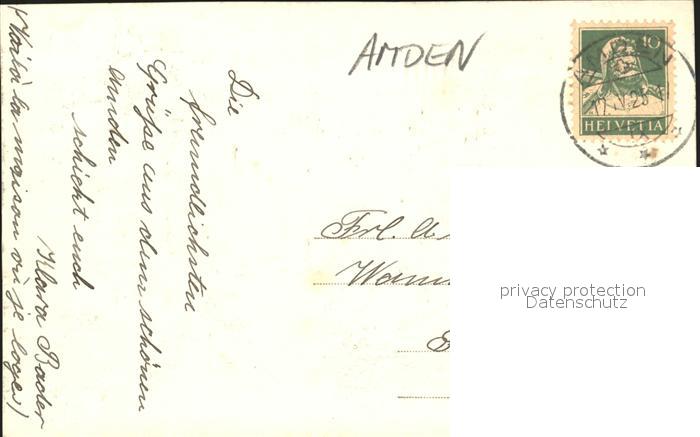 AMDEN
10
HELVETIA
Die
freundlichsten
Grüsse aus dem schönen
Amden
schickt euch
Klara Bader
(Voilà la maison où je loge)
Frl. A.
privacy protection
Datenschutz